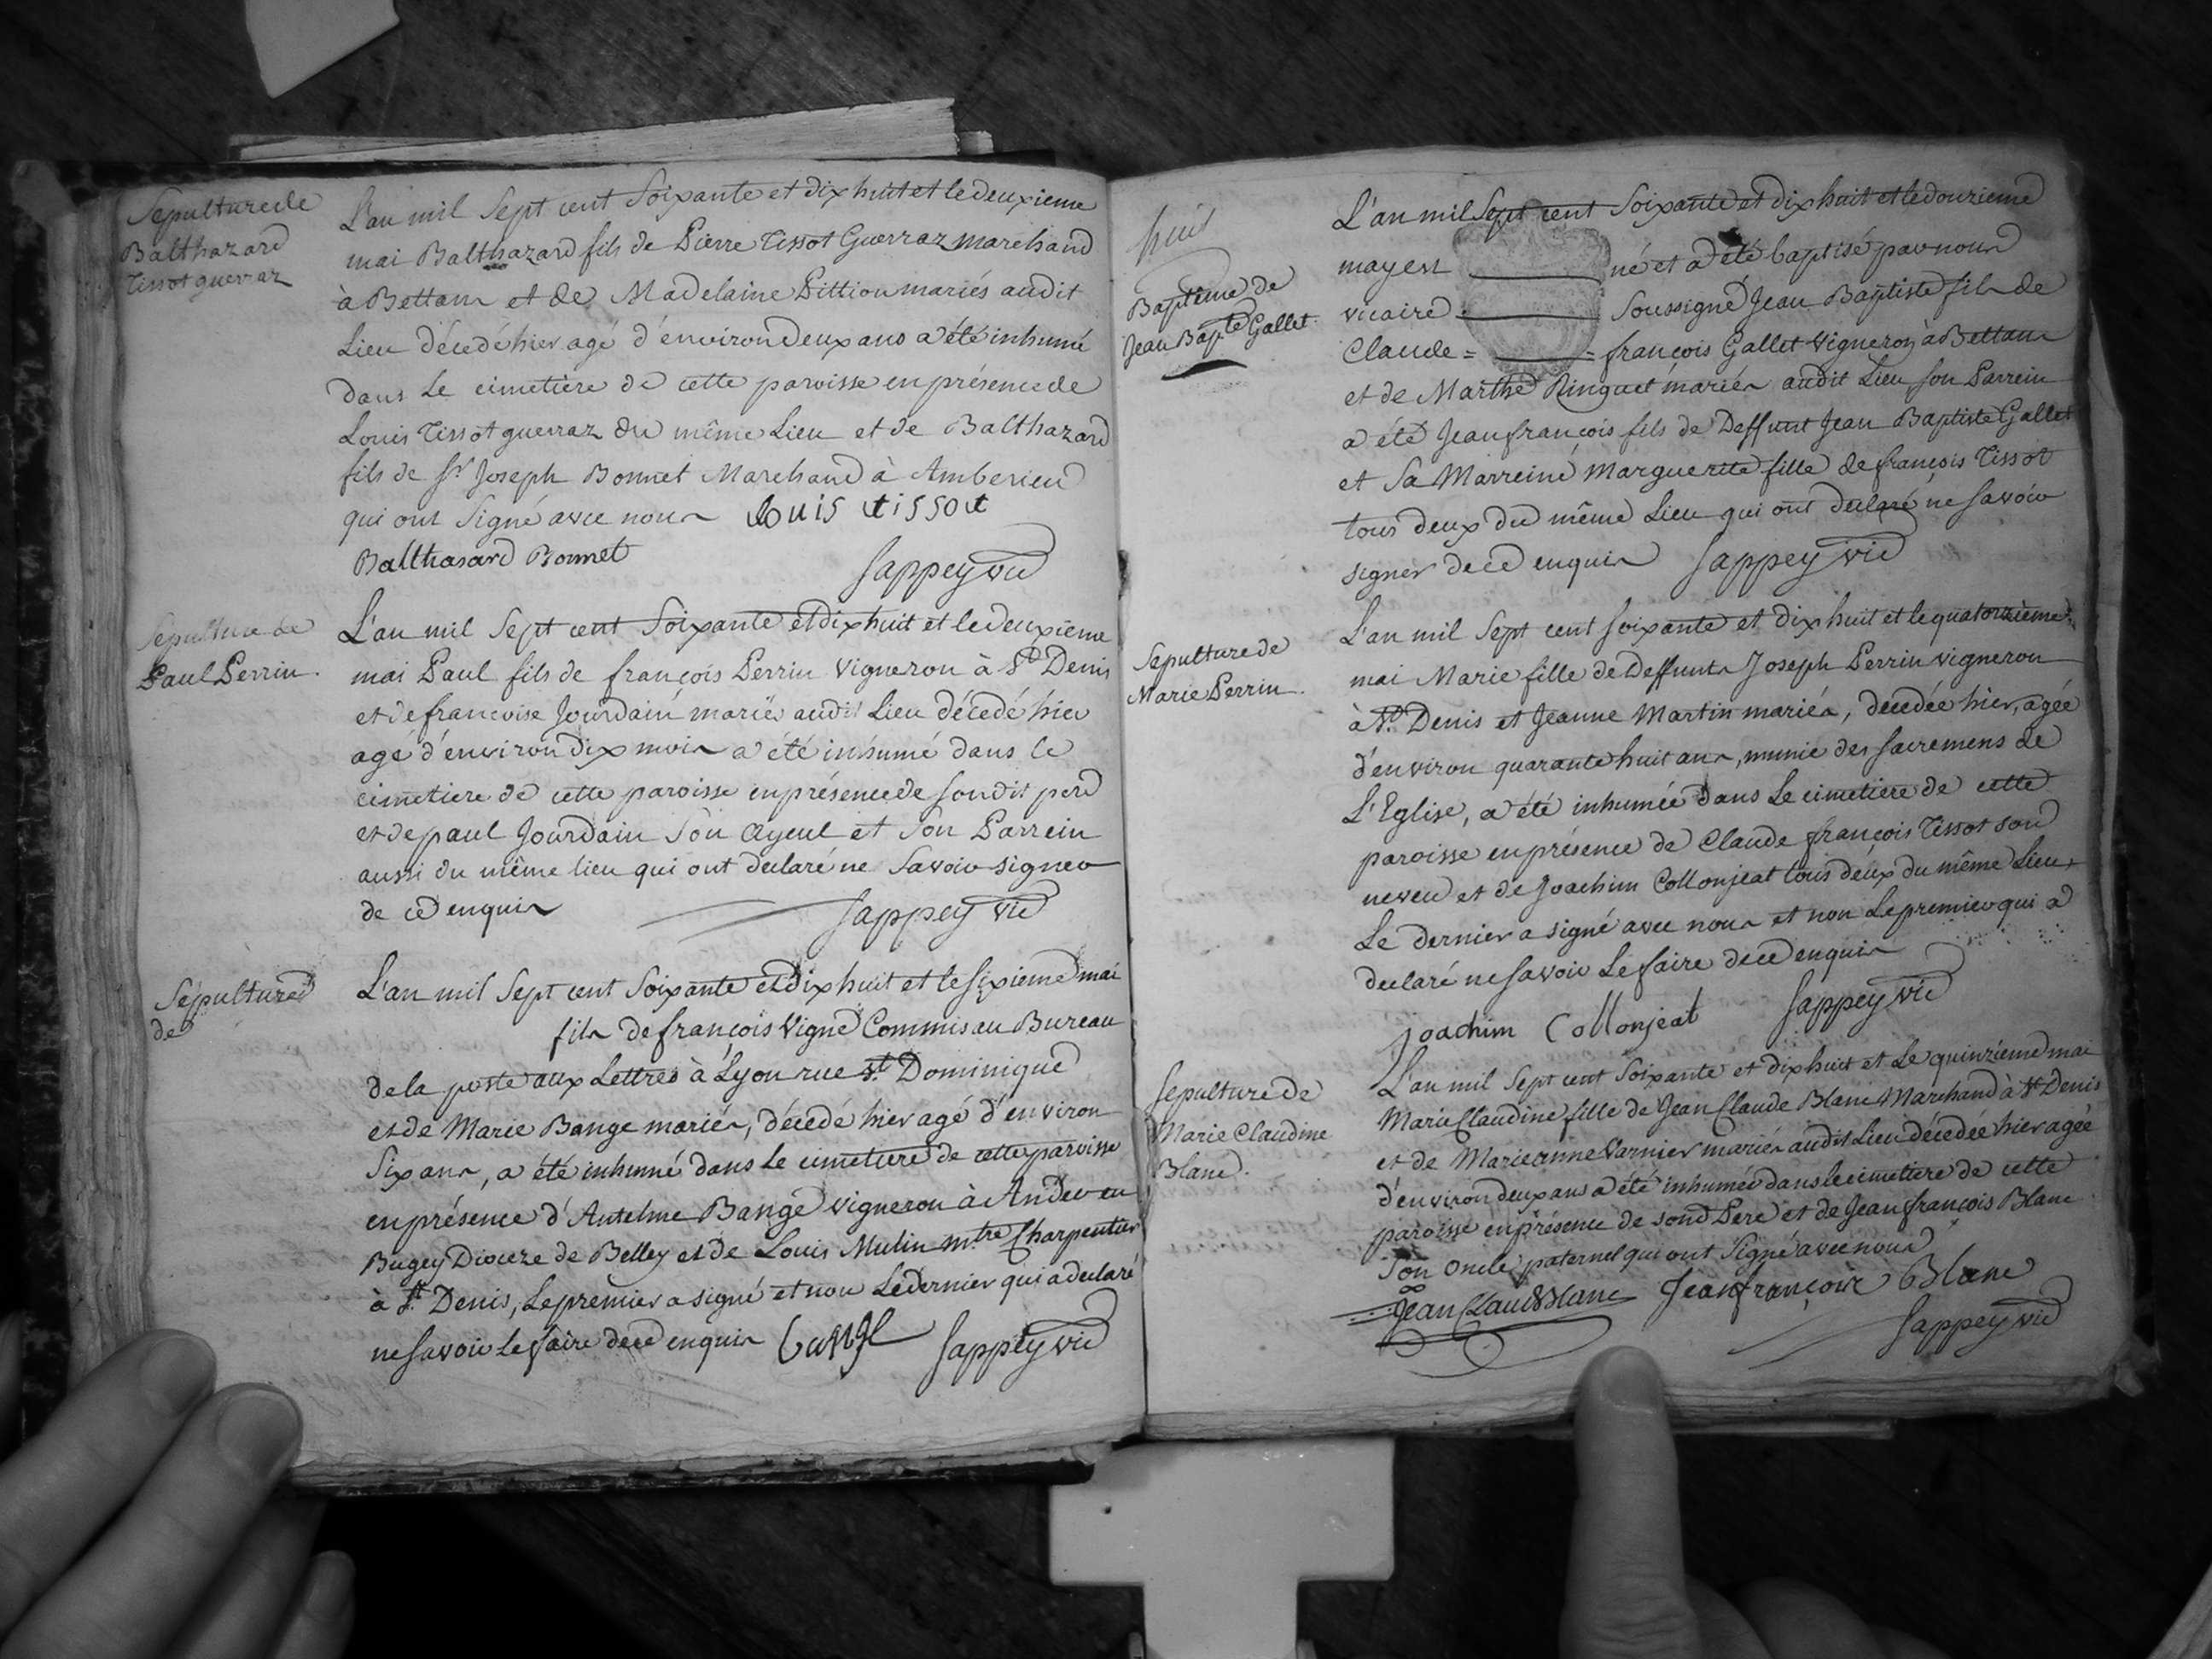 Sepulture de
Balthazard
Tissot guerraz
L'an mil Sept cent Soixante et dix huit et le deuxieme
mai Balthazard fils de Pierre Tissot Guerraz marchand
à Bettan et de Madelaine Pittion mariés audit
Lieu décedé hier agé d'environ deux ans a été inhumé
dans Le cimetière de cette paroisse en présence de
Louis Tissot guerraz du même Lieu et de Balthazard
fils de Sr Joseph Bonnet Marchand à Amberieu
qui ont Signé avec nous Louis tissot
Balthasard Bonnet Sappey vic
Sepulture de
Paul Perrin.
L'an mil Sept cent Soixante et dix huit et le deuxième
mai Paul fils de françois Perrin Vigneron à St Denis
et de francoise Jourdain mariés audit Lieu décedé hier
agé d'environ dix mois a été inhumé dans le
cimetiere de cette paroisse en présence de son dit pere
et de paul Jourdain Son Ayeul et Son Parrein
aussi du même lieu qui ont declaré ne Savoir signer
de ce enquis Sappey vic
Sépulture
de
L'an mil Sept cent Soixante et dix huit et le Sixieme mai
fils de françois Vigne Commis au Bureau
de la poste aux Lettres à Lyon rue St. Dominique
et de Marie Bange mariés, décedé hier agé d'environ
Six ans, a été inhumé dans Le cimetiere de cette paroisse
en présence d'Antelme Bange Vigneron à Andert en
Bugey Dioceze de Belley et de Louis Mulin mtre Charpentier
à St. Denis, Le premier a signé et non Le dernier qui a declaré
ne savoir Le faire de ce enquis Bange Sappey vic
huit
Baptême de
Jean Bapte Gallet.
L'an mil Sept cent Soixante et dix huit et le douzieme
may est né et a été baptisé par nous
vicaire Soussigné Jean Baptiste fils de
Claude = = françois Gallet Vigneron à Bettan
et de Marthe Ringuet mariés audit Lieu son Parrein
a été Jean françois fils de Deffunt Jean Baptiste Gallet
et Sa Marreine Marguerite fille de françois Tissot
tous deux du même Lieu qui ont declaré ne savoir
signer de ce enquis Sappey vic
Sepulture de
Marie Perrin.
L'an mil Sept cent soixante et dix huit et le quatorzième
mai Marie fille de Deffunts Joseph Perrin vigneron
à St. Denis et Jeanne Martin mariés, decedée hier, agée
d'environ quarante huit ans, munie des sacremens de
L'Eglise, a été inhumée dans Le cimetiere de cette
paroisse en présence de Claude françois Tissot son
neveu et de Joachim Collonjeat tous deux du même Lieu,
Le dernier a signé avec nous et non Le premier qui a
declaré ne savoir Le faire de ce enquis
Joachim Collonjeat Sappey vic
Sepulture de
Marie Claudine
Blanc.
L'an mil Sept cent Soixante et dix huit et Le quinzieme mai
Marie Claudine fille de Jean Claude Blanc Marchand à St Denis
et de Marieanne Varnier mariés audit Lieu décedée hier agée
d'environ deux ans a été inhumée dans le cimetiere de cette
paroisse en présence de son Pere et de Jean françois Blanc
Son Oncle paternel qui ont Signé avec nous
Jean Claude Blanc Jean françois Blanc
Sappey vic